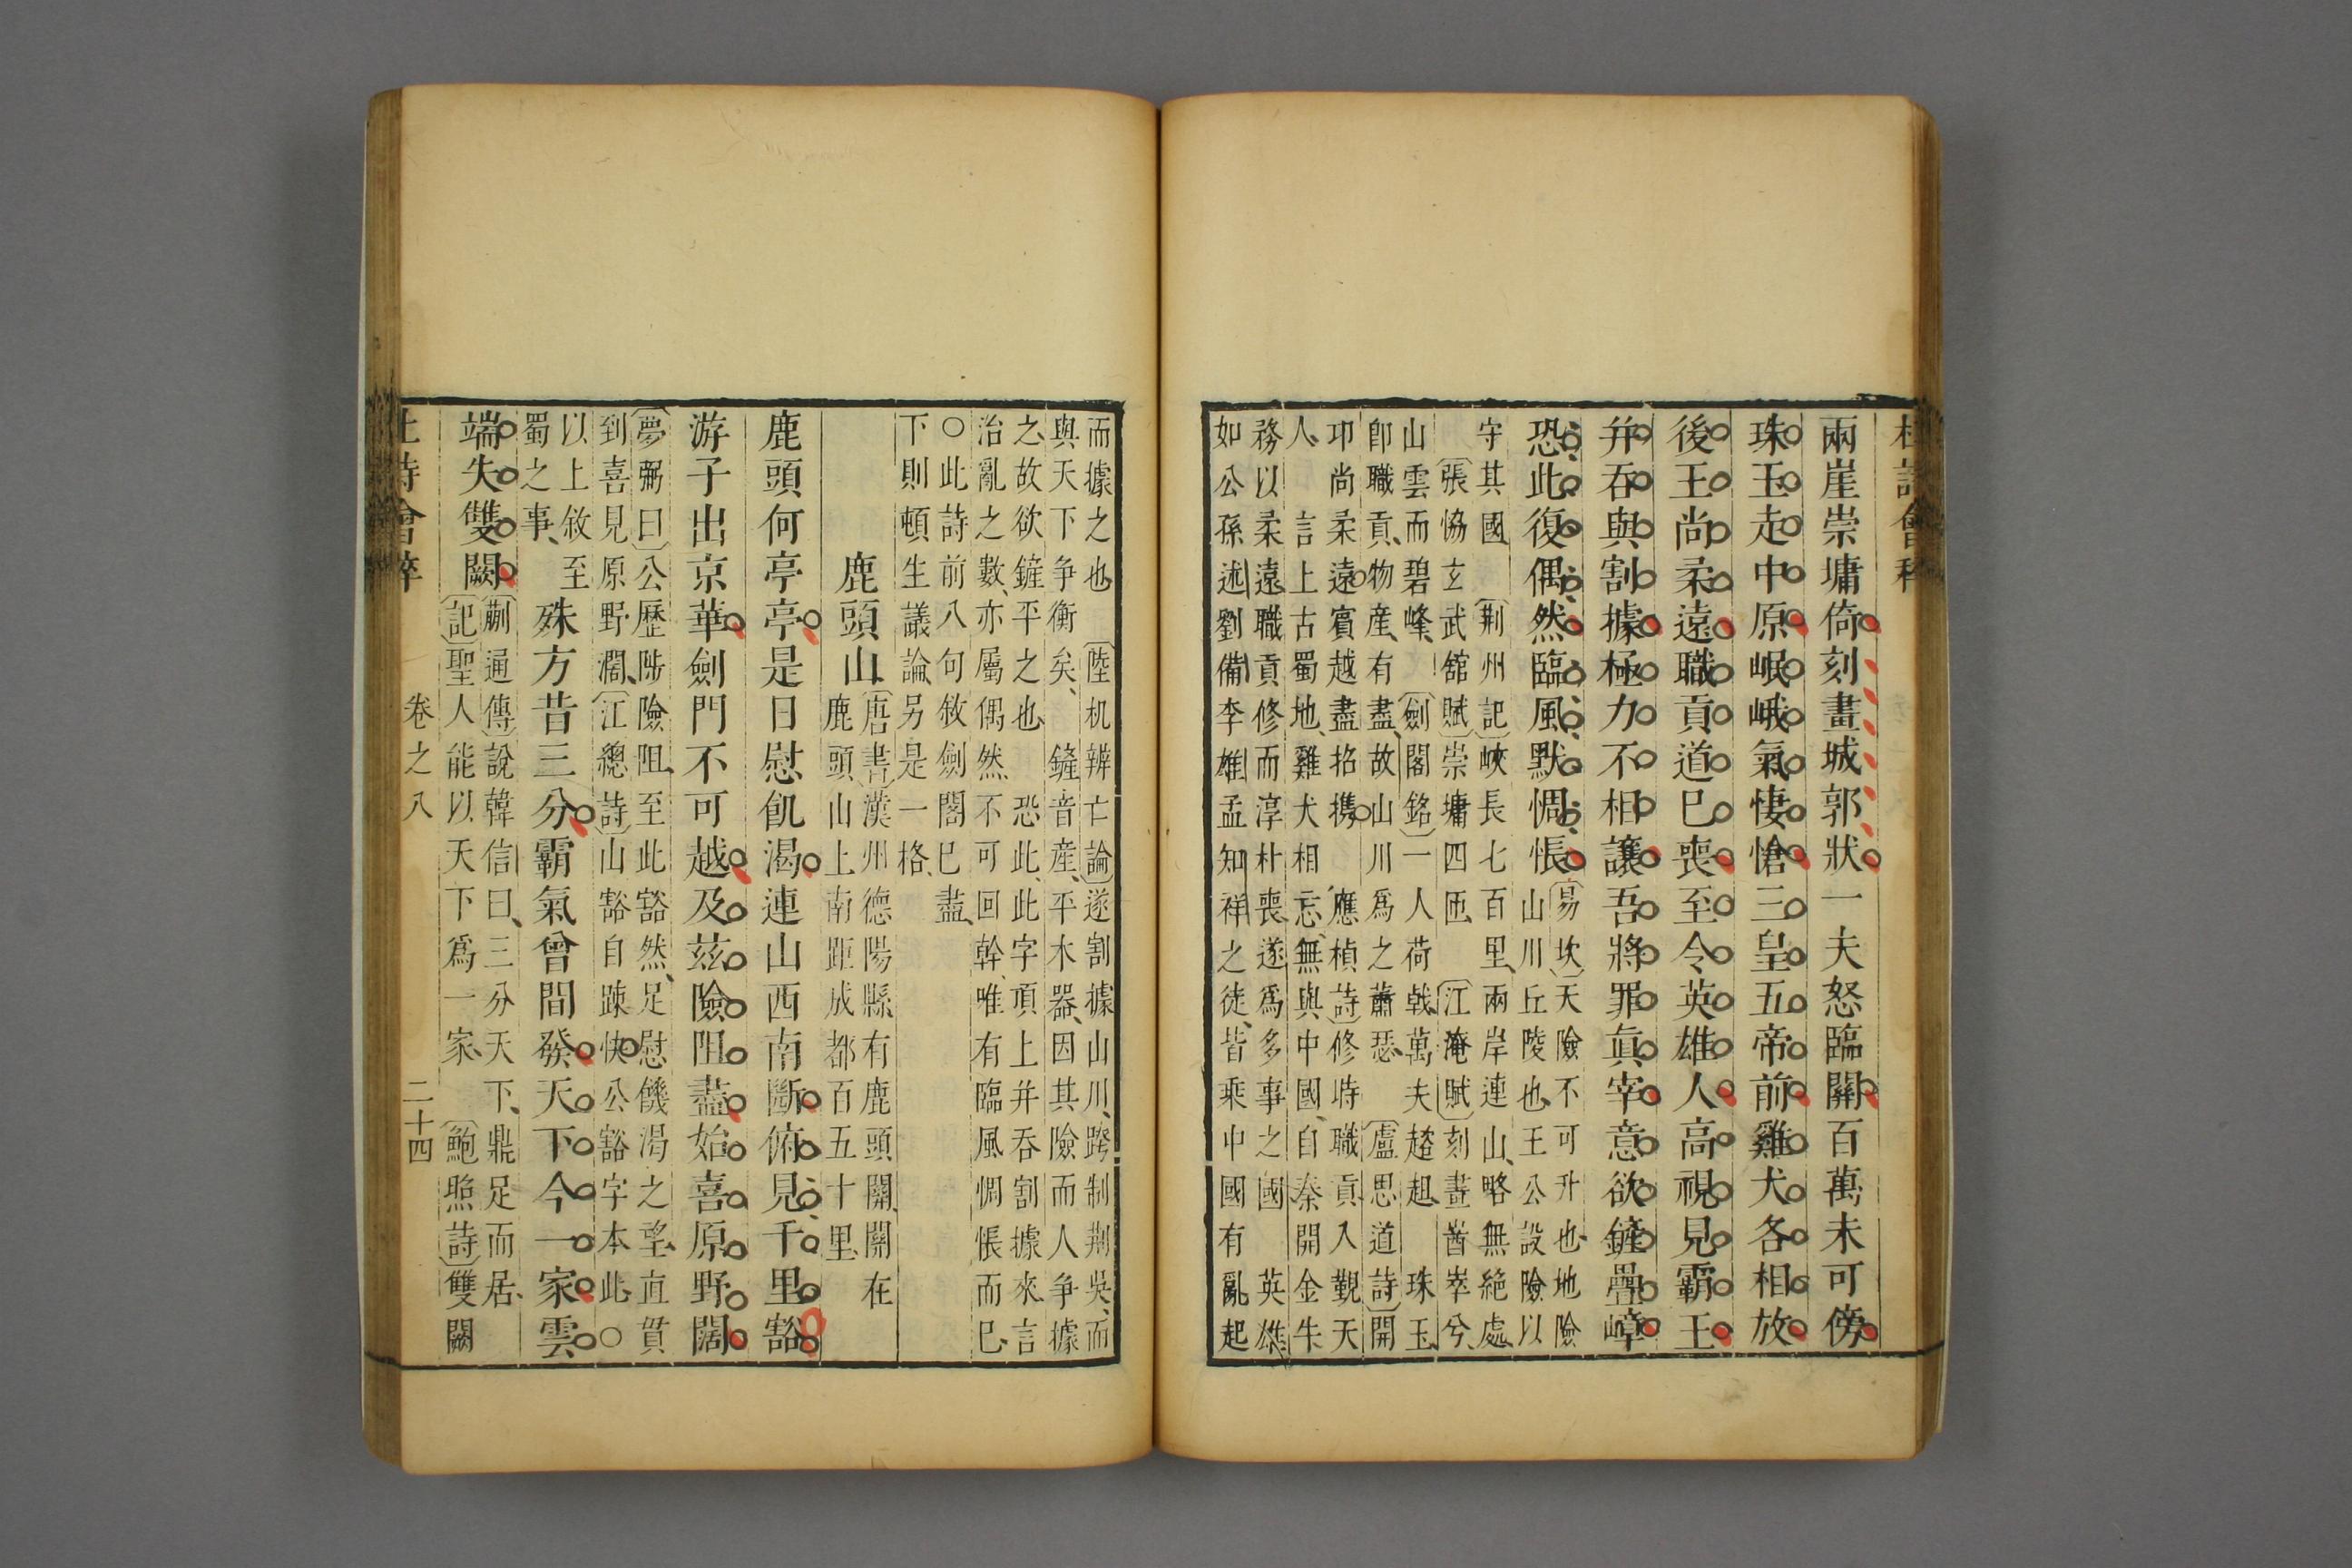 杜詩會稡
兩崖崇墉倚刻畫城郭狀一夫怒臨關百萬未可傍
珠玉走中原岷峨氣悽愴三皇五帝前雞犬各相放
後王尚柔遠職貢道巳喪至令英雄人高視見霸王
并吞與割據極力不相讓吾將罪眞宰意欲鏟疊嶂
恐此復偶然臨風默惆悵
〔易坎〕天險不可升也、地險
山川丘陵也、王公設險以
守其國 〔荆州記〕峽長七百里、兩岸連山、略無絕處、
〔張協玄武舘賦〕崇墉四匝 〔江淹賦〕刻畫嶜崒兮、
山雲而碧峰、 〔劍閣銘〕一人荷戟、萬夫趑趄、 珠玉、
卽職貢、物產、有盡、故山川爲之蕭瑟、 〔盧思道詩〕開
卭尚柔遠賓越盡招携 應楨詩〕修時職貢、入覲天
人、 言上古蜀地、雞犬相忘、無與中國、自秦開金牛
務以柔遠、職貢修而淳朴喪、遂爲多事之國 英雄
如公孫述劉備李雄孟知祥之徒、皆乘中國有亂起
而據之也 〔陸机辨亡論〕遂割據山川、跨制荆吳、而
與天下争衡矣、 鏟音産、平木器、因其險而人争據
之、故欲鏟平之也、 恐此、此字頂上并吞割據來、言
治亂之數、亦屬偶然、不可回幹、唯有臨風惆悵而巳
○此詩前八句敘劍閣巳盡、
下則頓生議論、另是一格、
鹿頭山
〔唐書〕漢州德陽縣有鹿頭關、關在
鹿頭山上南距成都百五十里、
鹿頭何亭亭是日慰飢渴連山西南斷俯見千里豁
游子出京華劍門不可越及茲險阻盡始喜原野闊
〔夢弼曰〕公歷陟險阻、至此豁然、足慰饑渴之望、直貫
到喜見原野濶、〔江總詩〕山豁自踈快公豁字本此、○
以上敘至
蜀之事、
殊方昔三分霸氣曾間發天下今一家雲
端失雙闕
〔蒯通傳〕說韓信曰、三分天下、鼎足而居、
〔記〕聖人能以天下爲一家、 〔鮑照詩〕雙闕
杜詩會稡 卷之八 二十四